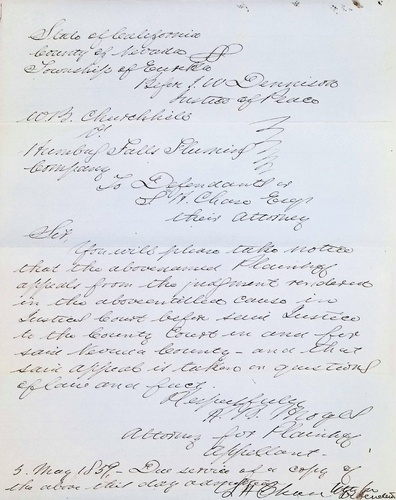 State of California
County of Nevada
Township of Eureka
Before J. W Dennison
Justice of Peace
W. B. Churchhill
vs
Humbug Falls Fluming
Company
To Defendants or
Chase Esqr
their attorney
Sir,
You will please take notice
that the abovenamed Plaintiff
appeals from the judgment rendered
in the aboveentitled cause in
Justices Court before said Justice
to the County Court in and for
said Nevada County - and that
said appeal is taken in questions
of law and fact.
Respectfully
Attorney for Plaintiff
Appellant.
3. May 1859 - Due service of a copy of
the above this day
Chase Atty for